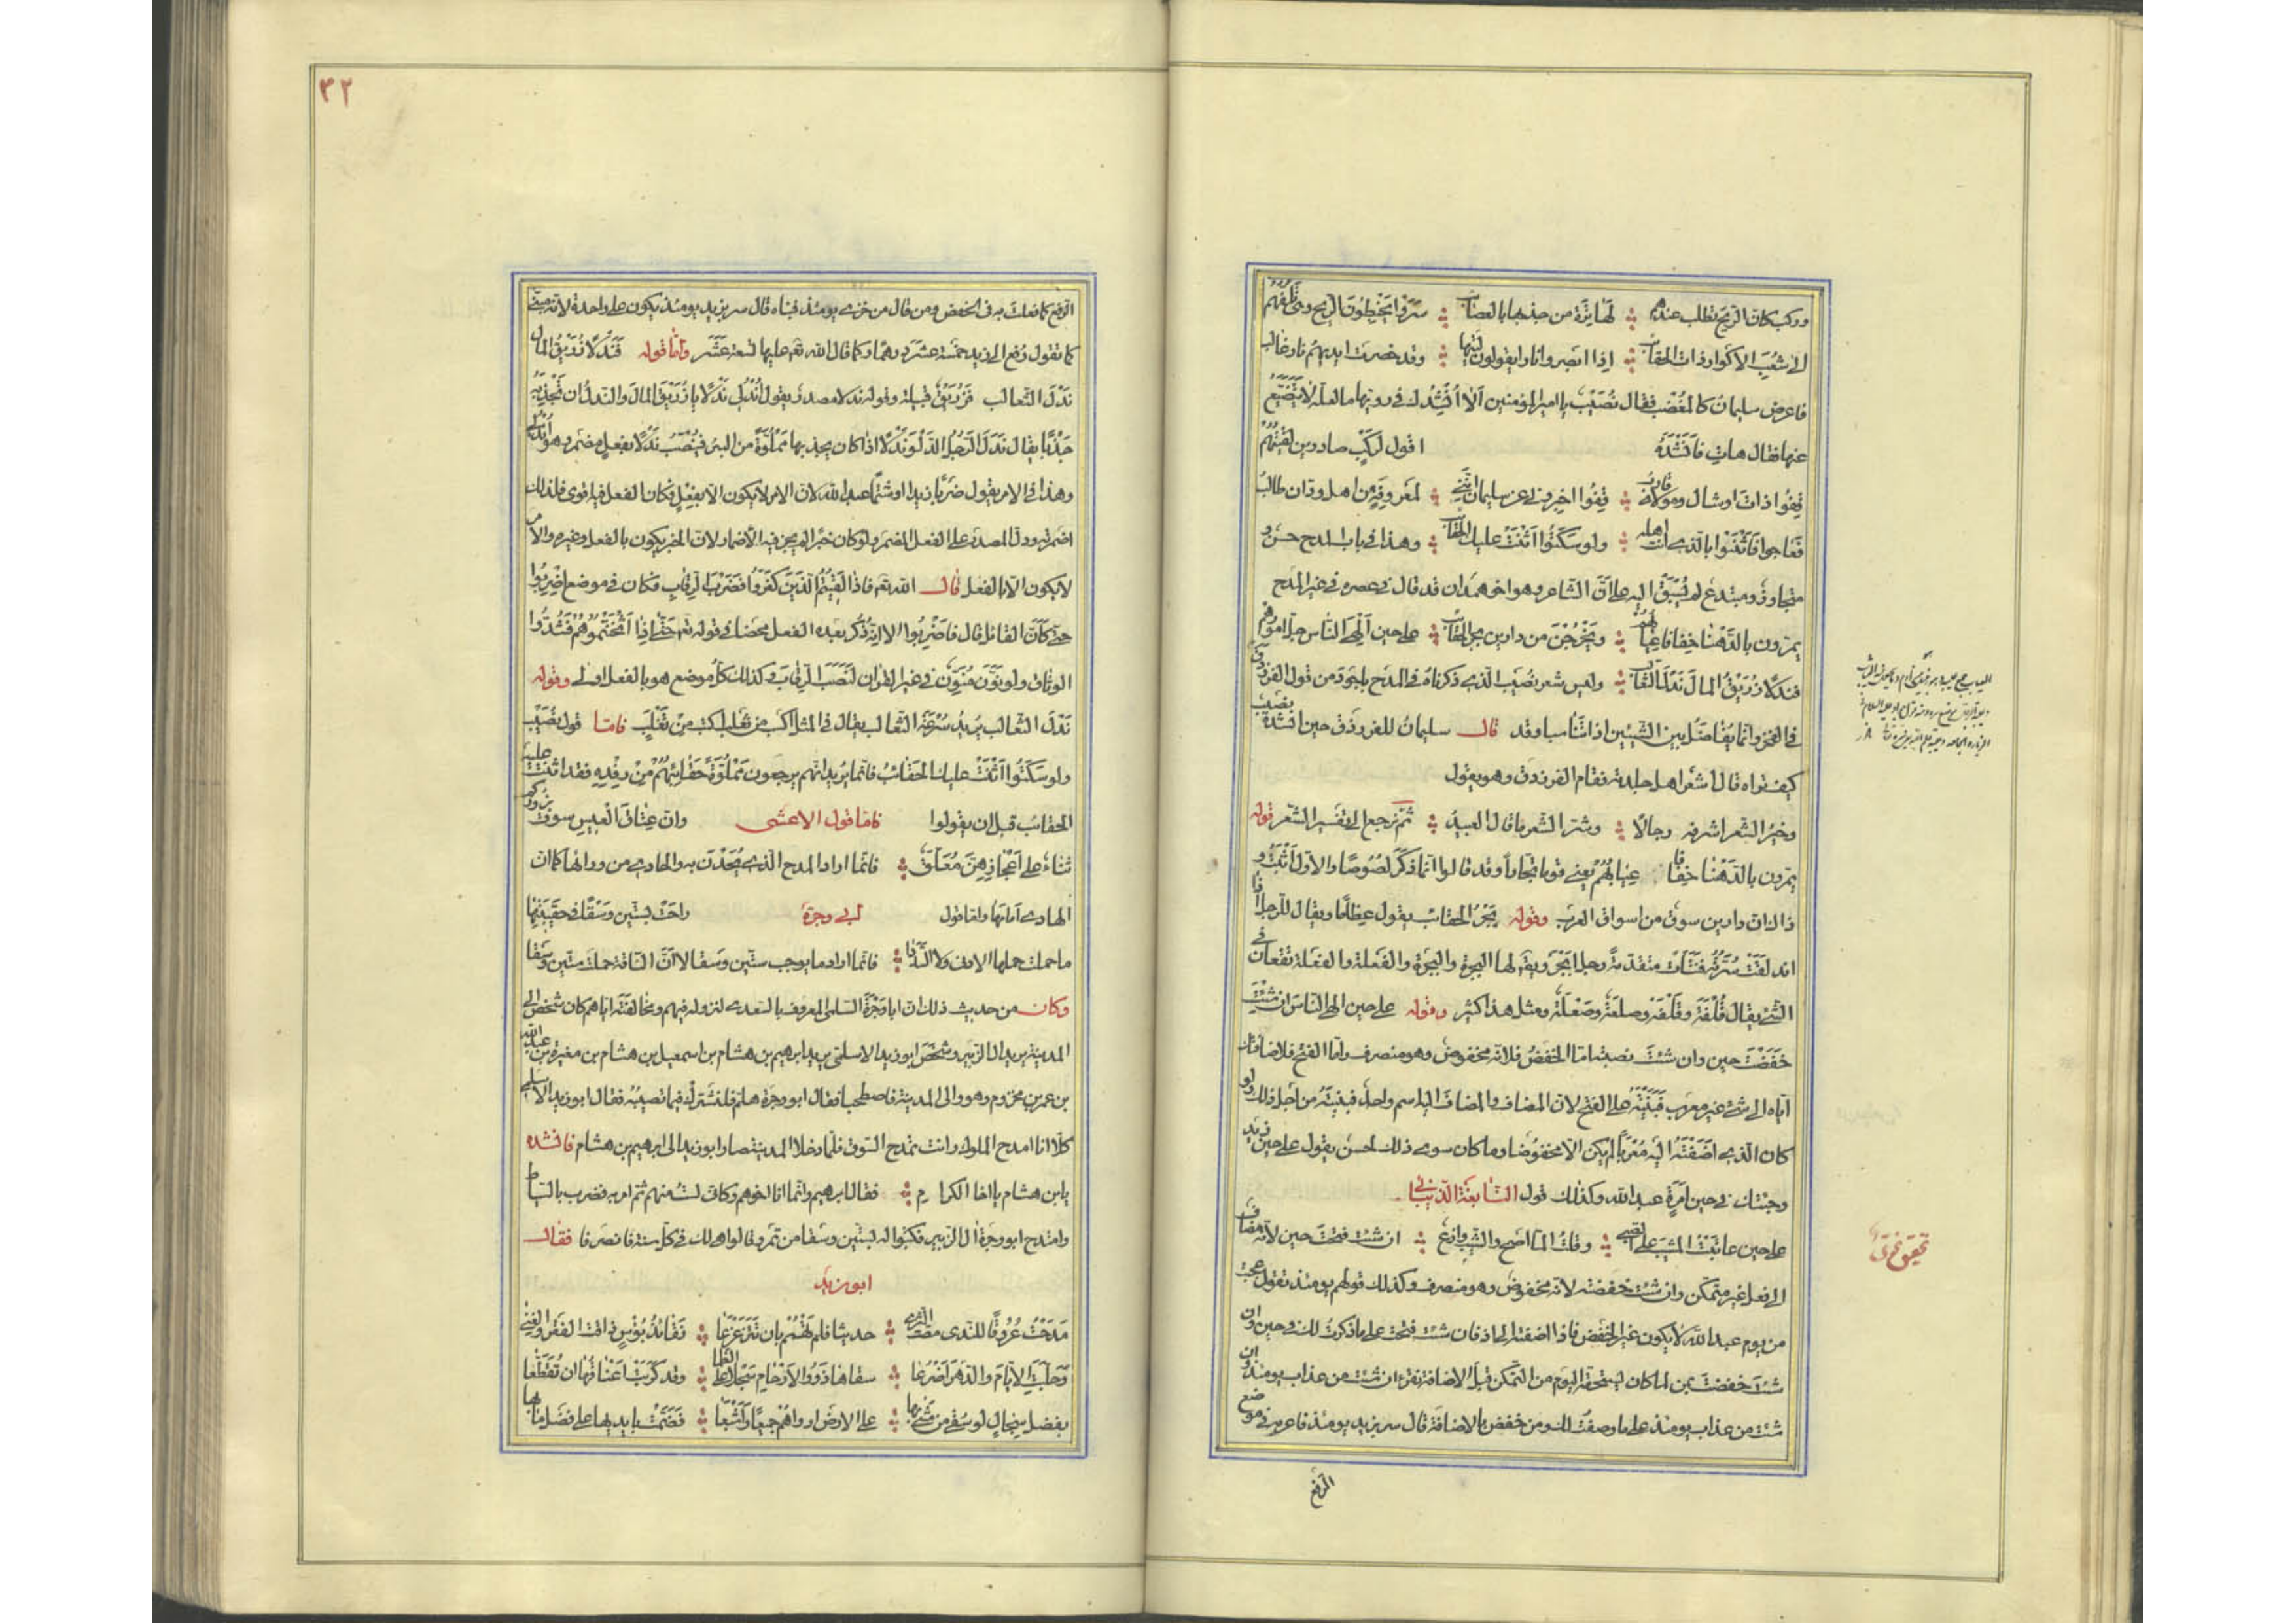 وركب كان الريح تطلب عندهم لها ترة من جذبها بالعصائب سروا يخبطون الريح وهي تلفهم
الى شعب الاكوار ذات الحقائب اذا ابصروا نارا يقولون ليتها وقد خصرت ايديهم نار غالب
فاعرض سليمان كالمغضب فقال نصيب يا امير المؤمنين الا انشدك في رويها ما لعله لا يتضع
عنها فقال هات فانشده اقول لركب صادرين لقيتهم
قفوا ذات اوشال ومولاك قارب قفوا اخبروني عن سليمان انني لمعروفه من اهل ودان طالب
فعاجوا فاثنوا بالذي انت اهله ولو سكتوا اثنت عليك الحقائب وهذا في باب المدح حسن و
متجاوز ومبتدع لم يسبق اليه على ان الشاعر وهو اخو همدان قد قال في عصره في غير المدح
يمرون بالدهنا خفافا عيابهم ويخرجن من دارين بجر الحقائب على حين الهى الناس جل امورهم
فندلا زريق المال ندل الثعالب وليس شعر نصيب الذي ذكرناه في المدح باجود من قول الفرزدق
في الفخر وانما يفاضل بين الشيئين اذا تناسبا وقد قال سليمان للفرزدق حين انشده نصيب
كيف تراه قال اشعر اهل جلدته فقام الفرزدق وهو يقول
وخير الشعر اشرفه رجالا وشر الشعر ما قال العبيد ثم نرجع الى تفسير الشعر قوله
يمرون بالدهنا خفافا عيابهم يعني قوما تجارا وقد قالوا انما ذكر لصوصا والاول اثبت و
ذالك ان دارين سوق من اسواق العرب وقوله بجر الحقائب يقول عظاما ويقال للرجل اذا
اندلقت سرته فنتات متقدمة رجل ابجر ويق لها البجرة والبجرة والفعلة والفعلة تقعان في
الشئ يقال قلفة وقلفة وصلعة وصلعة ومثل هذا كثير وقوله على حين الهى الناس ان شئت
خفضت حين وان شئت نصبت اما الخفض فلانه مخفوض وهو منصرف واما الفتح فلاضافتك
اياه الى شئ غير معرب فبنيته على الفتح لان المضاف والمضاف اليه اسم واحد فبنيته من اجل ذلك ولو
كان الذي اضفته اليه معربا لم يكن الا مخفوضا وما كان سوى ذلك لحن يقول على حين زيد
وجئتك في حين امرة عبد الله وكذلك قول النابغة الذبياني
على حين عاتبت المشيب على الصبى وقلت الما اصح والشيب وازع ان شئت فتحت حين لانه مضاف
الى فعل غير متمكن وان شئت خفضته لانه مخفوض وهو منصرف وكذلك قولهم يومئذ تقول عجبت
من يوم عبد الله لا يكون غير الخفض فاذا اضفته الى اذ فان شئت فتحت على ما ذكرت لك في حين وان
شئت خفضت لما كان يستحقه اليوم من التمكن قبل الاضافة تقرء ان شئت من عذاب يومئذ وان
شئت من عذاب يومئذ على ما وصفت لك ومن خفض بالاضافة قال سير بزيد يومئذ فاعربه في موضع
الرفع
تحقيق نحوي
٣٢
الرفع كما فعلت به في الخفض ومن قال من خزي يومئذ فبناه قال سير بزيد يومئذ يكون على واحدة لانه مبني
كما تقول دفع الى زيد خمسة عشر درهما وكما قال الله تع عليها تسعة عشر واما قوله فندلا زريق المال
ندل الثعالب فزريق قبيلة وقوله ندلا مصدر يقول اندلي ندلا يا زريق المال والندل ان تجذبه
جذبا يقال ندل الرجل الدلو ندلا اذا كان يجذبها مملوة من البئر فينصب ندلا بفعل مضمر وهو اندلي
وهذا في الامر يقول ضربا زيدا وشتما عبد الله لان الامر لا يكون الا بفعل فكان الفعل فيه اقوى فلذلك
اضمرته ودل المصدر على الفعل المضمر ولو كان خبرا لم يجز فيه الاضمار لان الخبر يكون بالفعل وغيره والامر
لا يكون الا بالفعل قال الله تع فاذا لقيتم الذين كفروا فضرب الرقاب فكان في موضع اضربوا
حتى كان القائل قال فاضربوا الا انه ذكر بعده الفعل محضا في قوله تع حتى اذا اثخنتموهم فشدوا
الوثاق ولو نون منون في غير القران لنصب الرقاب وكذلك كل موضع هو بالفعل اولى وقوله
ندل الثعالب يريد سرعة الثعالب يقال في المثل اكسب من ثعلب فاما قول نصيب
ولو سكتوا اثنت عليك الحقائب فانما يريد انهم يرجعون مملوة حقائبهم من رفده فقد اثنت عليه
الحقائب قبل ان يقولوا فاما قول الاعشى وان عتاق العيس سوف يزوركم
ثناء على اعجازهن معلق فانما اراد المدح الذي يحدث به والحادي من ورائها كما ان
الهادي امامها واما قول ابي وجزة راحت بستين وسقا في حقيبتها
ما حملت حملها الادنى ولا السددا فانما اراد ما يوجب ستين وسقا لا ان الناقة حملت ستين وسقا
وكان من حديث ذلك ان ابا وجزة السلمي المعروف بالسعدي لنزوله فيهم ومحالفته اياهم كان شخص الى
المدينة يريد ال الزبير وشخص ابو زيد الاسلمي يريد ابرهيم بن هشام بن اسمعيل بن هشام بن مغيرة بن عبد الله
بن عمر بن مخزوم وهو والى المدينة فاصطحبا فقال ابو وجزة هلم فلنشترك فيما نصيبه فقال ابو زيد الاسلمي
كلا انا امدح الملوك وانت تمدح السوق فلما دخلا المدينة صار ابو زيد الى ابرهيم بن هشام فانشده
يابن هشام يا اخا الكرام فقال ابرهيم وانما انا اخوهم وكاني لست منهم ثم امر به فضرب بالسياط
وامتدح ابو وجزة ال الزبير فكتبوا له بستين وسقا من تمر وقالوا هي لك في كل سنة فانصرفا فقال
ابو زيد
مدحت عروقا للندى مصت الثرى حديثا فلم تهمم بان تتزعزعا نقائذ بؤس ذاقت الفقر والغنى
وحلبت الايام والدهر اضرعا سقاها ذوو الارحام سجلا على الظما وقد كربت اعناقها ان تقطعا
بفضل سجال لو سقوا من مشى بها على الارض ارواهم جميعا واشبعا فضمت بايديها على فضل مائها